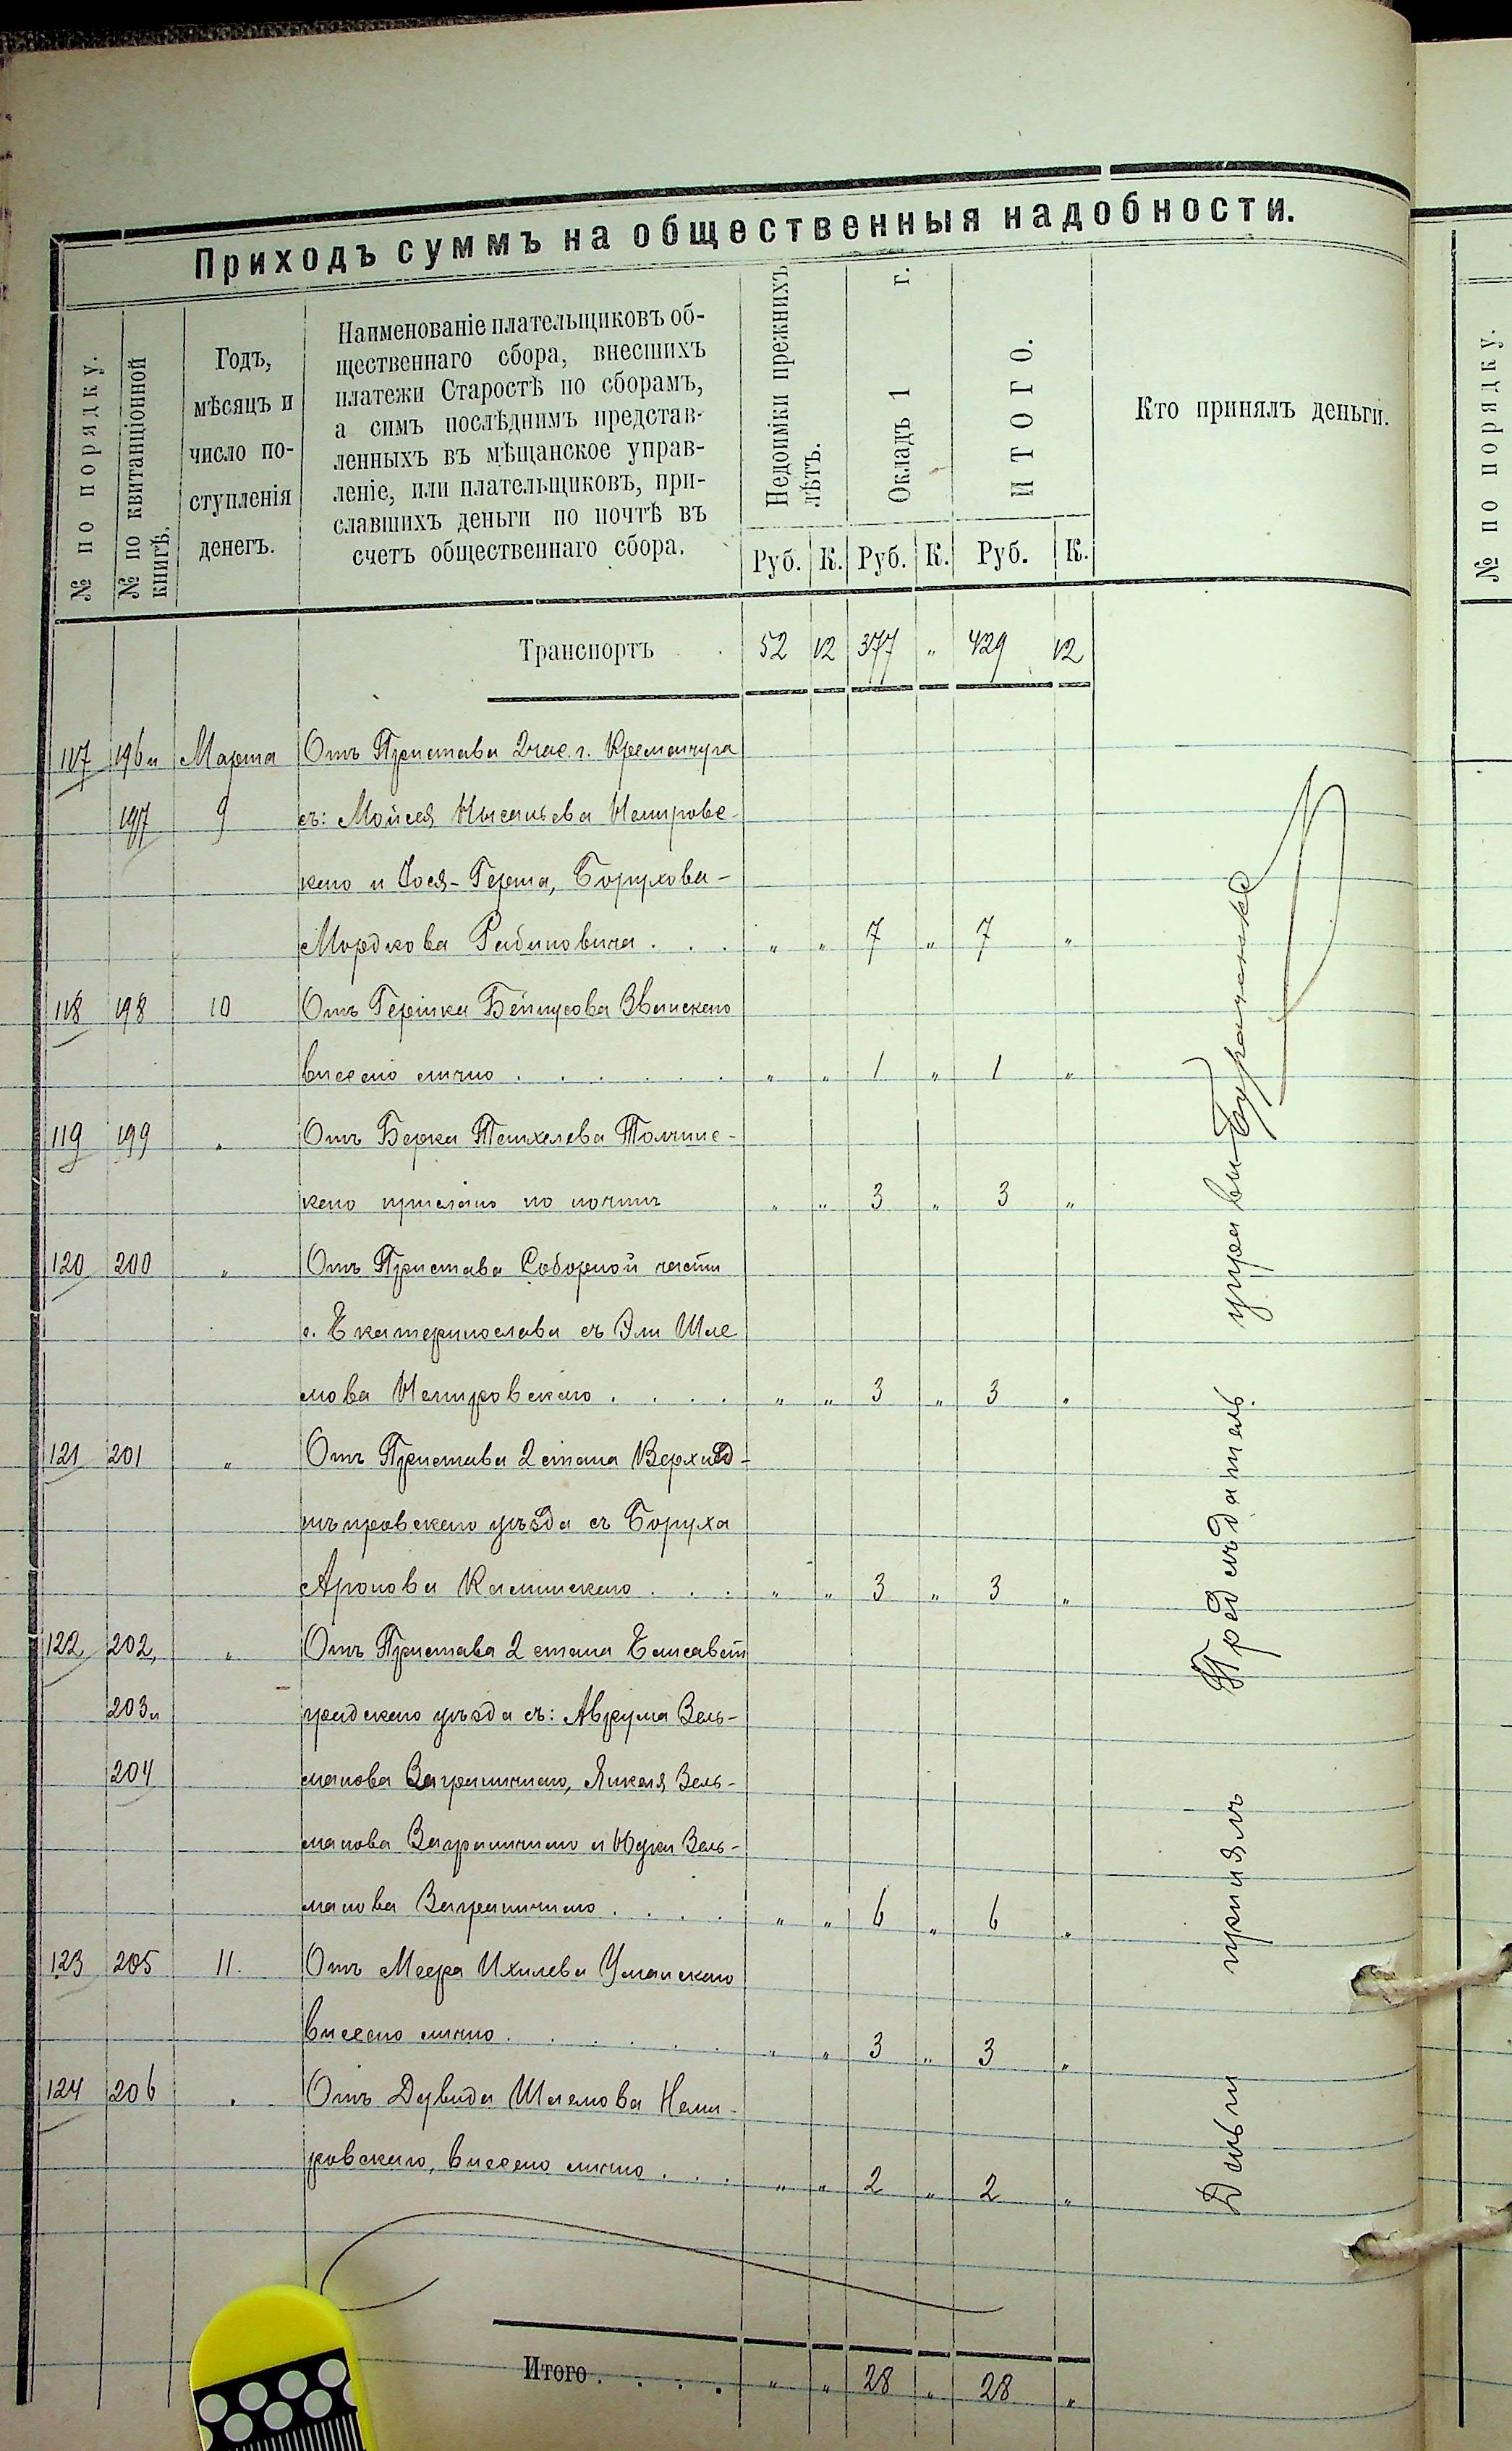 Приходъ суммъ на общественныя надобности.
№ по порядку.
№ по квитанціонной книгѣ.
Годъ,
мѣсяцъ и
число по-
ступленія
денегъ.
Наименованіе плательщиковъ об-
щественнаго сбора, внесшихъ
платежи Старостѣ по сборамъ,
а симъ послѣднимъ представ-
ленныхъ въ мѣщанское управ-
леніе, или плательщиковъ, при-
славшихъ деньги по почтѣ въ
счетъ общественнаго сбора.
Недоимки прежнихъ лѣтъ.
Окладъ 1 г.
ИТОГО.
Кто принялъ деньги.
Руб. К. Руб. К. Руб. К.
Транспортъ 52 12 377 " 429 12
117 196 и Марта Отъ Пристава 2 час. г. Кременчуга
197 9 съ: Мойсея Нысаньева Немировс-
каго и Іося-Герша, Борухова-
Мордкова Рабиновича . . . " " 7 " 7 "
118 198 10 Отъ Гершка Бейнусова Званскаго
внесено лично . . . . . . " " 1 " 1 "
119 199 " Отъ Берка Толчинс-
каго прислано по почтѣ " " 3 " 3 "
120 200 " Отъ Пристава Соборной части
г. Екатеринослава съ Эли Шле
мова Немировскаго . . . . " " 3 " 3 "
121 201 " Отъ Пристава 2 стана Верхнед-
нѣпровскаго уѣзда съ Боруха
Аронова Каминскаго . . . " " 3 " 3 "
122 202, " Отъ Пристава 2 стана Елисавет
203 и градскаго уѣзда съ: Аврума Зель-
204 манова Заграничнаго, Янкеля Зель-
манова Заграничнаго и Юдки Зель-
манова Заграничнаго . . . . " " 6 " 6 "
123 205 11. Отъ Меера Ихилева Уманскаго
внесено лично . . . . . . " " 3 " 3 "
124 206 " Отъ Дувида Шлемова Неми-
ровскаго, внесено лично . . . " " 2 " 2 "
Итого . . . . " " 28 " 28 "
Деньги принялъ Предсѣдатель управы
№ по порядку.